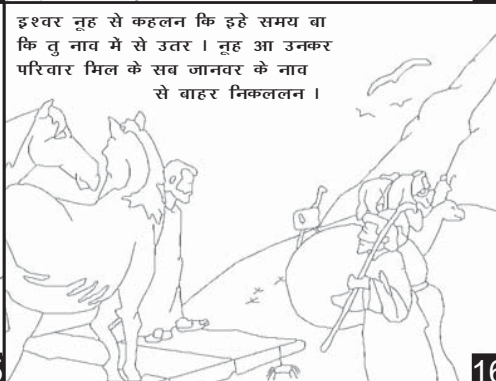 इश्वर नूह से कहलन कि इहे समय बा
कि तु नाव में से उतर । नूह आ उनकर
परिवार मिल के सब जानवर के नाव
से बाहर निकललन ।
16